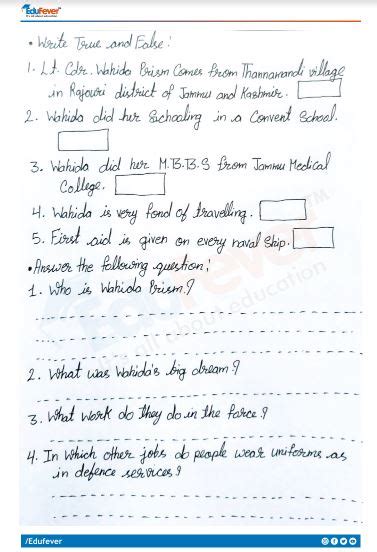 EduFever
It's all about education
• Write True and False:
1. Lt. Cdr. Wahida Prism Comes from Thannamandi village
in Rajouri district of Jammu and Kashmir.
2. Wahida did her Schooling in a Convent School.
3. Wahida did her M.B.B.S from Jammu Medical
College.
4. Wahida is very fond of travelling.
TM
5. First aid is given on every naval ship.
• Answer the following question;
1. Who is Wahida Prism?
EduFever
It's all about education
2. What was Wahida's big dream?
3. What work do they do in the farce?
4. In which other jobs do people wear uniforms as
in defence services?
/Edufever